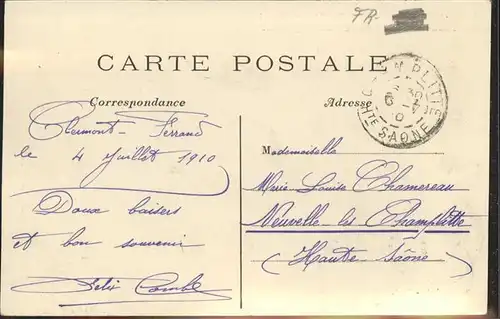 FR.
CARTE POSTALE
Correspondance
Adresse
CHAMPLITTE
Hte SAONE
Clermont-Ferrand
le 4 Juillet 1910
Doux baisers
et bon souvenir
Felix Combe
Mademoiselle
Marie-Louise Chamereau
Neuvelle-les-Champlitte
(Haute Saône)